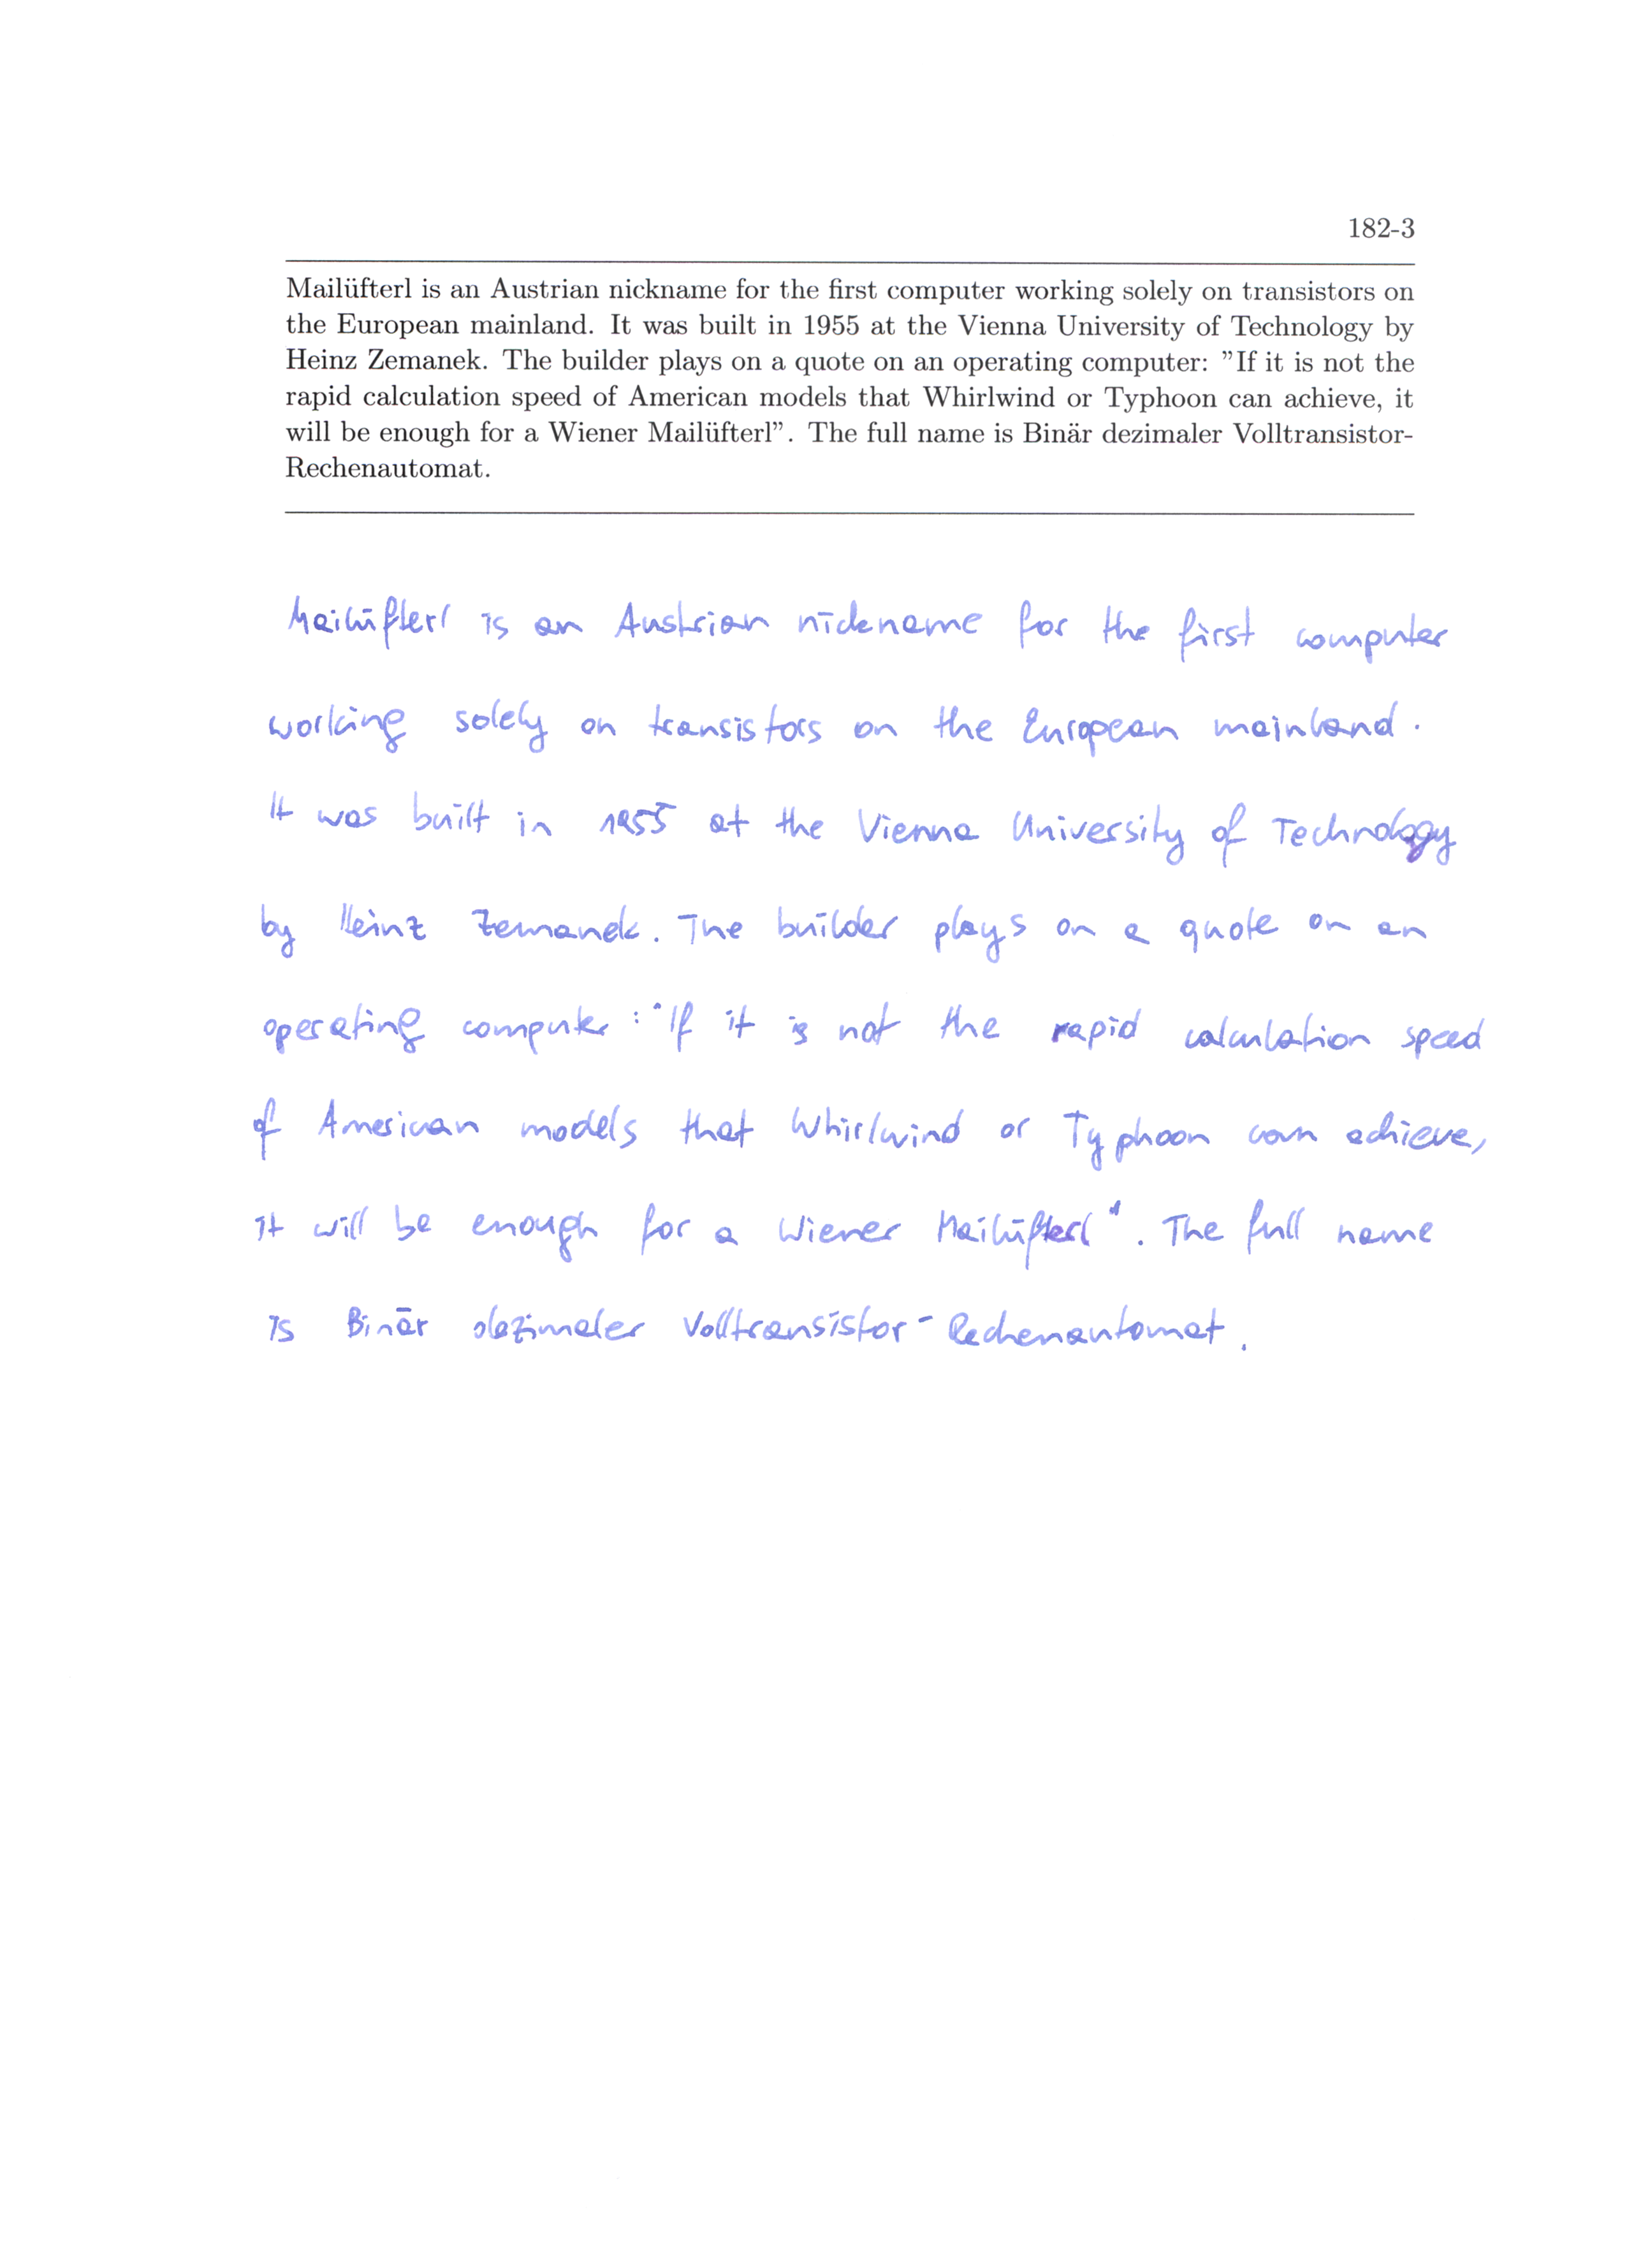 182-3
Mailüfterl is an Austrian nickname for the first computer working solely on transistors on
the European mainland. It was built in 1955 at the Vienna University of Technology by
Heinz Zemanek. The builder plays on a quote on an operating computer: ”If it is not the
rapid calculation speed of American models that Whirlwind or Typhoon can achieve, it
will be enough for a Wiener Mailüfterl”. The full name is Binär dezimaler Volltransistor-
Rechenautomat.
Mailüfterl is an Austrian nickname for the first computer
working solely on transistors on the European mainland.
It was built in 1955 at the Vienna University of Technology
by Heinz Zemanek. The builder plays on a quote on an
operating computer: "If it is not the rapid calculation speed
of American models that Whirlwind or Typhoon can achieve,
it will be enough for a Wiener Mailüfterl". The full name
is Binär dezimaler Volltransistor-Rechenautomat.